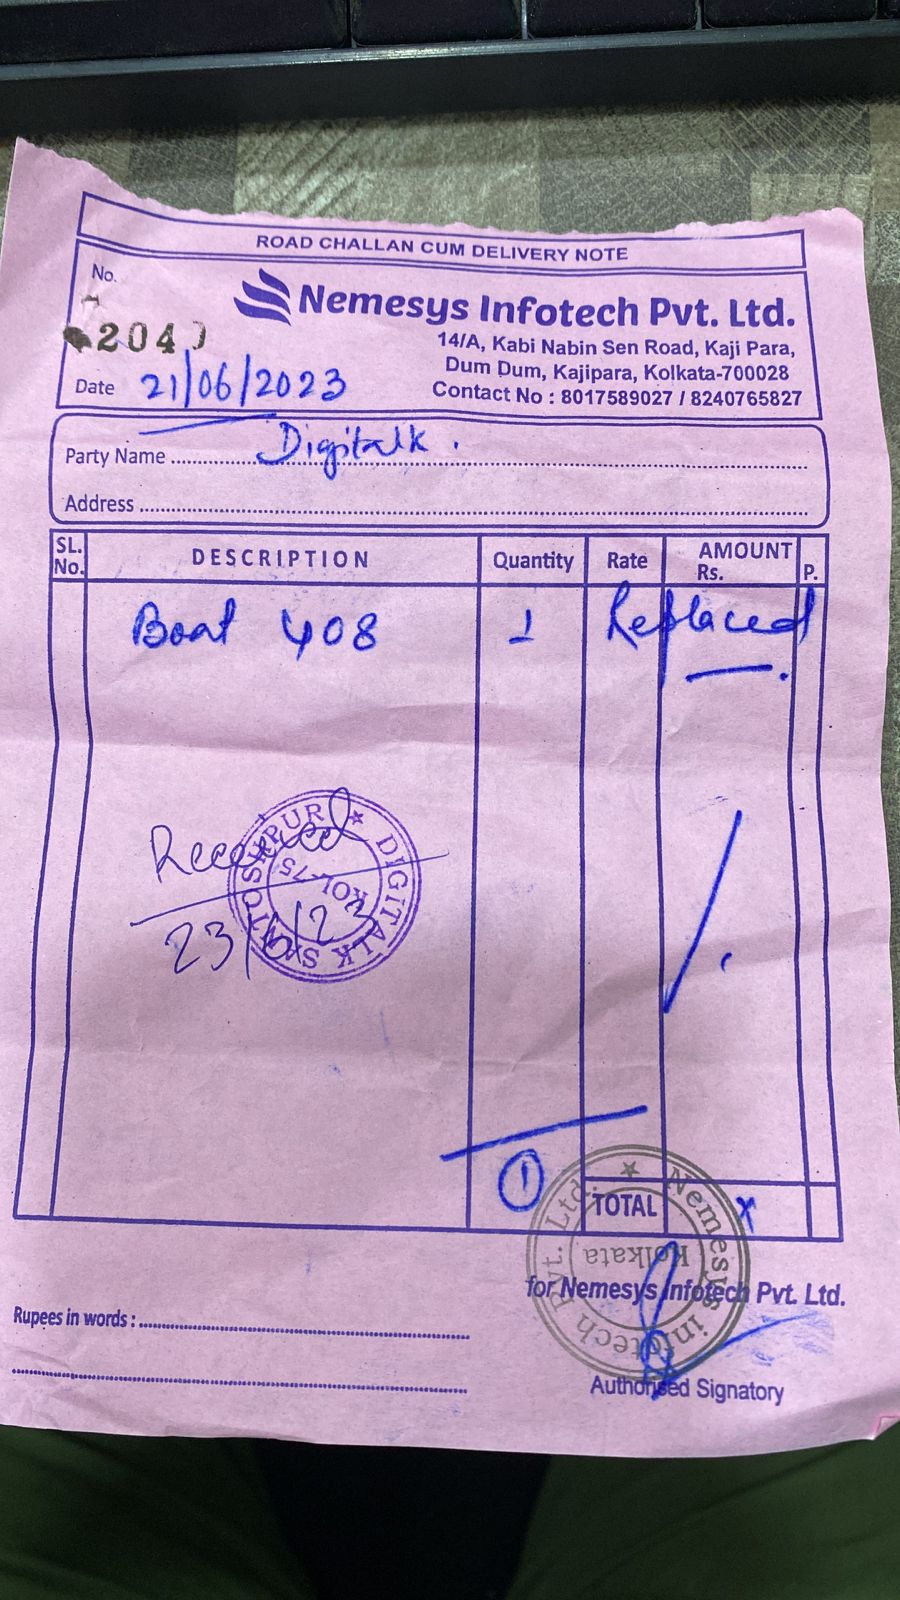 ROAD CHALLAN CUM DELIVERY NOTE
No.
204
Nemesys Infotech Pvt. Ltd.
14/A, Kabi Nabin Sen Road, Kaji Para,
Dum Dum, Kajipara, Kolkata-700028
Contact No : 8017589027 / 8240765827
Date 21/06/2023
Party Name Digitalk.
Address
SL. No. DESCRIPTION Quantity Rate AMOUNT Rs. P.
Boat 408 1 Replaced
Received
23/6/23
DIGITALK SANTOSHPUR
KOL-75
1
TOTAL x
Nemesys infotech Pvt. Ltd.
Kolkata
for Nemesys Infotech Pvt. Ltd.
Rupees in words :
Authorised Signatory